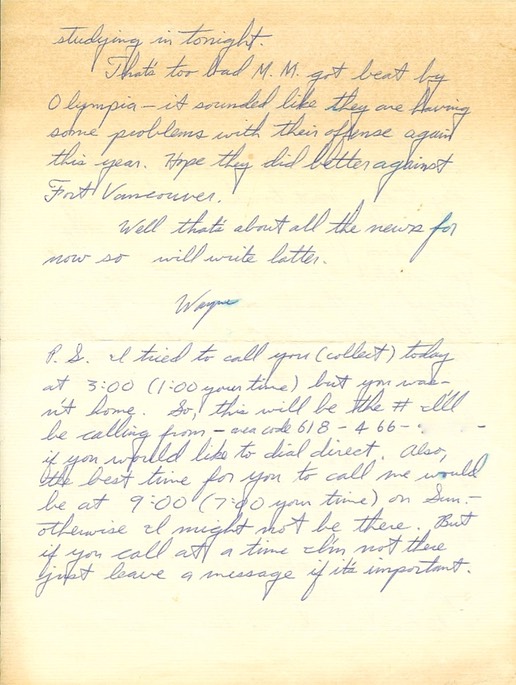 studying in tonight.
That's too bad M. M. got beat by
Olympia - it sounded like they are having
some problems with their offense again
this year. Hope they did better against
Fort Vancouver.
Well that's about all the news for
now so will write latter.
Wayne
P. S. I tried to call you (collect) today
at 3:00 (1:00 your time) but you was-
n't home. So, this will be the # I'll
be calling from - area code 618 - 466 - -
if you would like to dial direct. Also,
the best time for you to call me would
be at 9:00 (7:00 your time) on Sun. -
otherwise I might not be there. But
if you call at a time I'm not there
just leave a message if it's important.